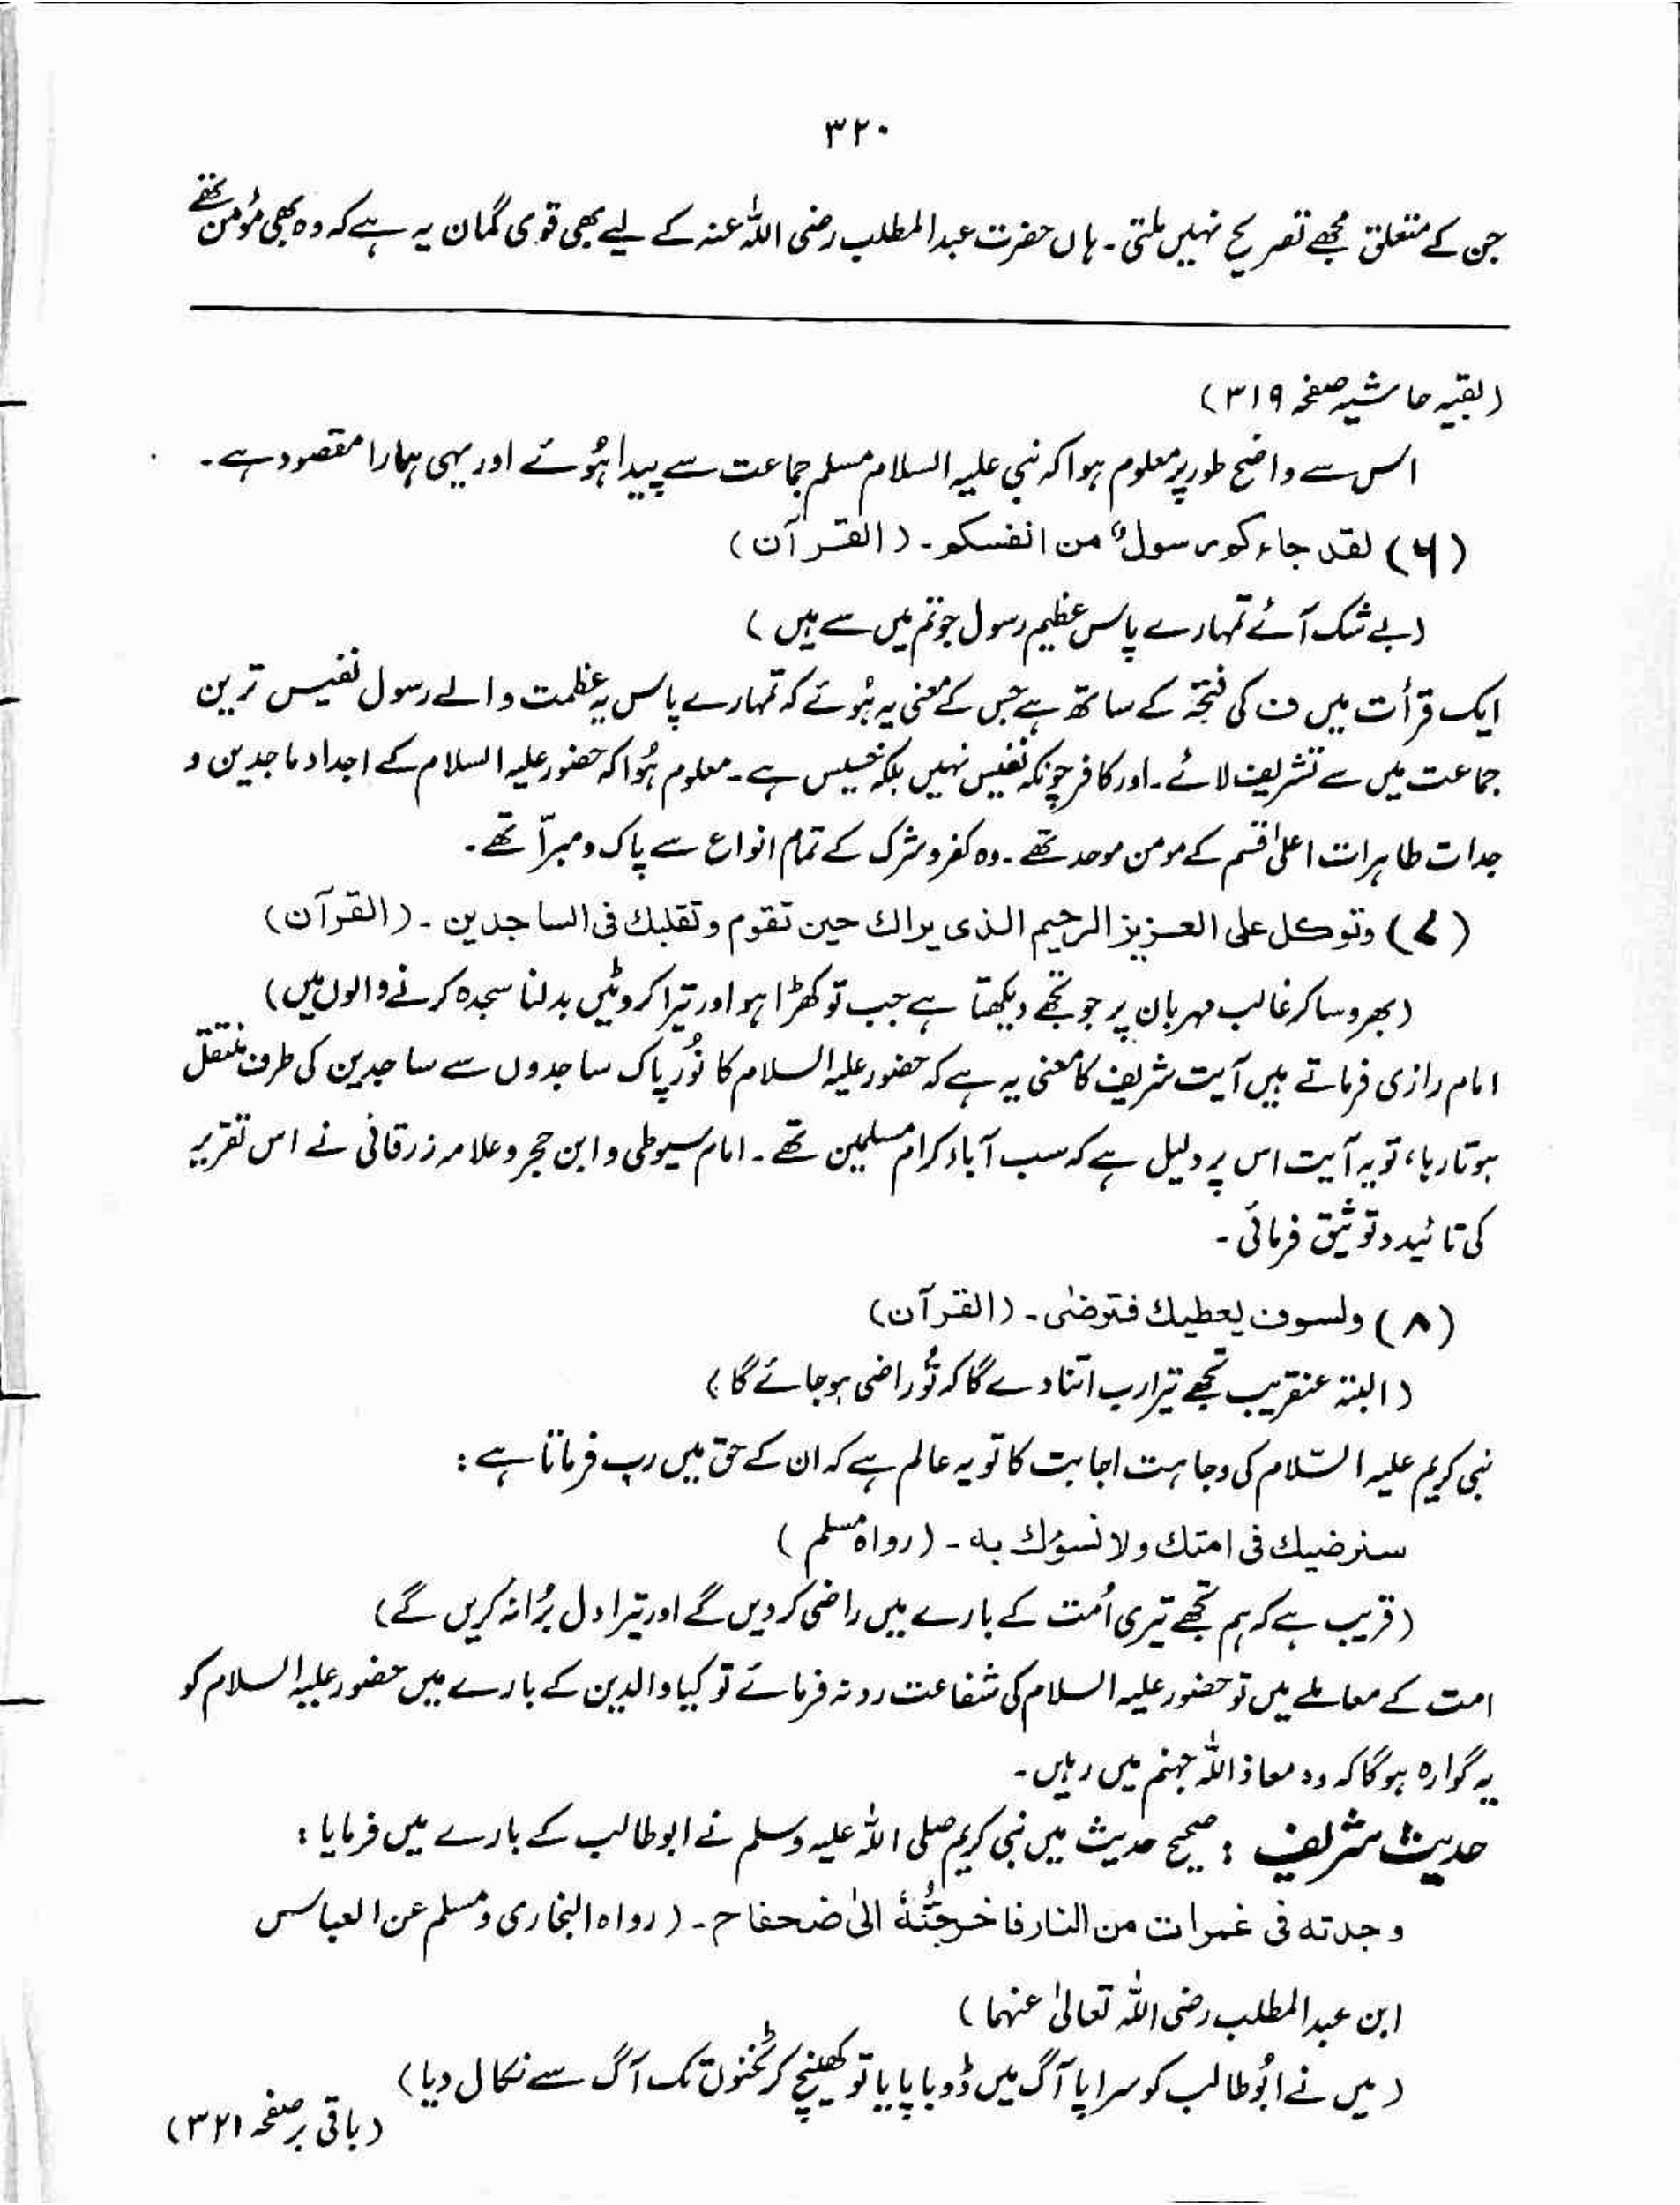 ۳۲۰
جن کے متعلق مجھے تصریح نہیں ملتی۔ ہاں حضرت عبدالمطلب رضی اللہ عنہ کے لیے بھی قوی گمان یہ ہے کہ وہ بھی مؤمن تھے
(بقیہ حاشیہ صفحہ ۳۱۹)
اس سے واضح طور پر معلوم ہوا کہ نبی علیہ السلام مسلم جماعت سے پیدا ہُوئے اور یہی ہمارا مقصود ہے۔
(۶) لقد جاءکم رسولٌ من انفسکم۔ (القرآن)
(بے شک آئے تمہارے پاس عظیم رسول جو تم میں سے ہیں)
ایک قرأت میں ف کی فتحہ کے ساتھ ہے جس کے معنی یہ ہُوئے کہ تمہارے پاس یہ عظمت والے رسول نفیس ترین
جماعت میں سے تشریف لائے۔ اور کافر چونکہ نفیس نہیں بلکہ خسیس ہے۔ معلوم ہُوا کہ حضور علیہ السلام کے اجداد ماجدین و
جدات طاہرات اعلیٰ قسم کے مومن موحد تھے۔ وہ کفر و شرک کے تمام انواع سے پاک و مبرّا تھے۔
(۷) وتوکل علی العزیز الرحیم الذی یراك حین تقوم وتقلبك فی الساجدین۔ (القرآن)
(بھروسا کر غالب مہربان پر جو تجھے دیکھتا ہے جب تو کھڑا ہو اور تیرا کروٹیں بدلنا سجدہ کرنے والوں میں)
امام رازی فرماتے ہیں آیت شریف کا معنی یہ ہے کہ حضور علیہ السلام کا نُور پاک ساجدوں سے ساجدین کی طرف منتقل
ہوتا رہا، تو یہ آیت اس پر دلیل ہے کہ سب آباء کرام مسلمین تھے۔ امام سیوطی و ابن حجر و علامہ زرقانی نے اس تقریر
کی تائید و توثیق فرمائی۔
(۸) ولسوف یعطیك فترضیٰ۔ (القرآن)
(البتہ عنقریب تجھے تیرا رب اتنا دے گا کہ تُو راضی ہو جائے گا)
نبی کریم علیہ السّلام کی وجاہت اجابت کا تو یہ عالم ہے کہ ان کے حق میں رب فرماتا ہے:
سنرضیك فی امتك ولا نسوٴك به۔ (رواہ مسلم)
(قریب ہے کہ ہم تجھے تیری اُمت کے بارے میں راضی کر دیں گے اور تیرا دل بُرا نہ کریں گے)
امت کے معاملے میں تو حضور علیہ السلام کی شفاعت رد نہ فرمائے تو کیا والدین کے بارے میں حضور علیہ السلام کو
یہ گوارہ ہوگا کہ وہ معاذ اللہ جہنم میں رہیں۔
حدیث شریف : صحیح حدیث میں نبی کریم صلی اللہ علیہ وسلم نے ابوطالب کے بارے میں فرمایا :
وجدته فی غمرات من النار فاخرجتُهٗ الیٰ ضحضاح۔ (رواہ البخاری ومسلم عن العباس
ابن عبدالمطلب رضی اللہ تعالیٰ عنہما)
(میں نے ابُوطالب کو سراپا آگ میں ڈوبا پایا تو کھینچ کر ٹخنوں تک آگ سے نکال دیا)
(باقی برصفحہ ۳۲۱)